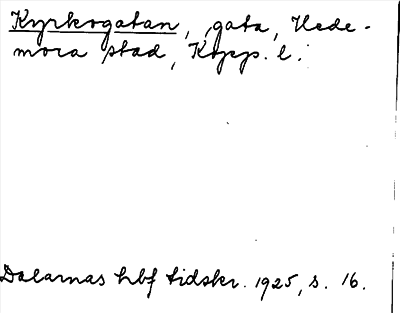 Kyrkogatan, gata, Hede-
mora stad, Kopp. l.
Dalarnas hbf tidskr. 1925, s. 16.